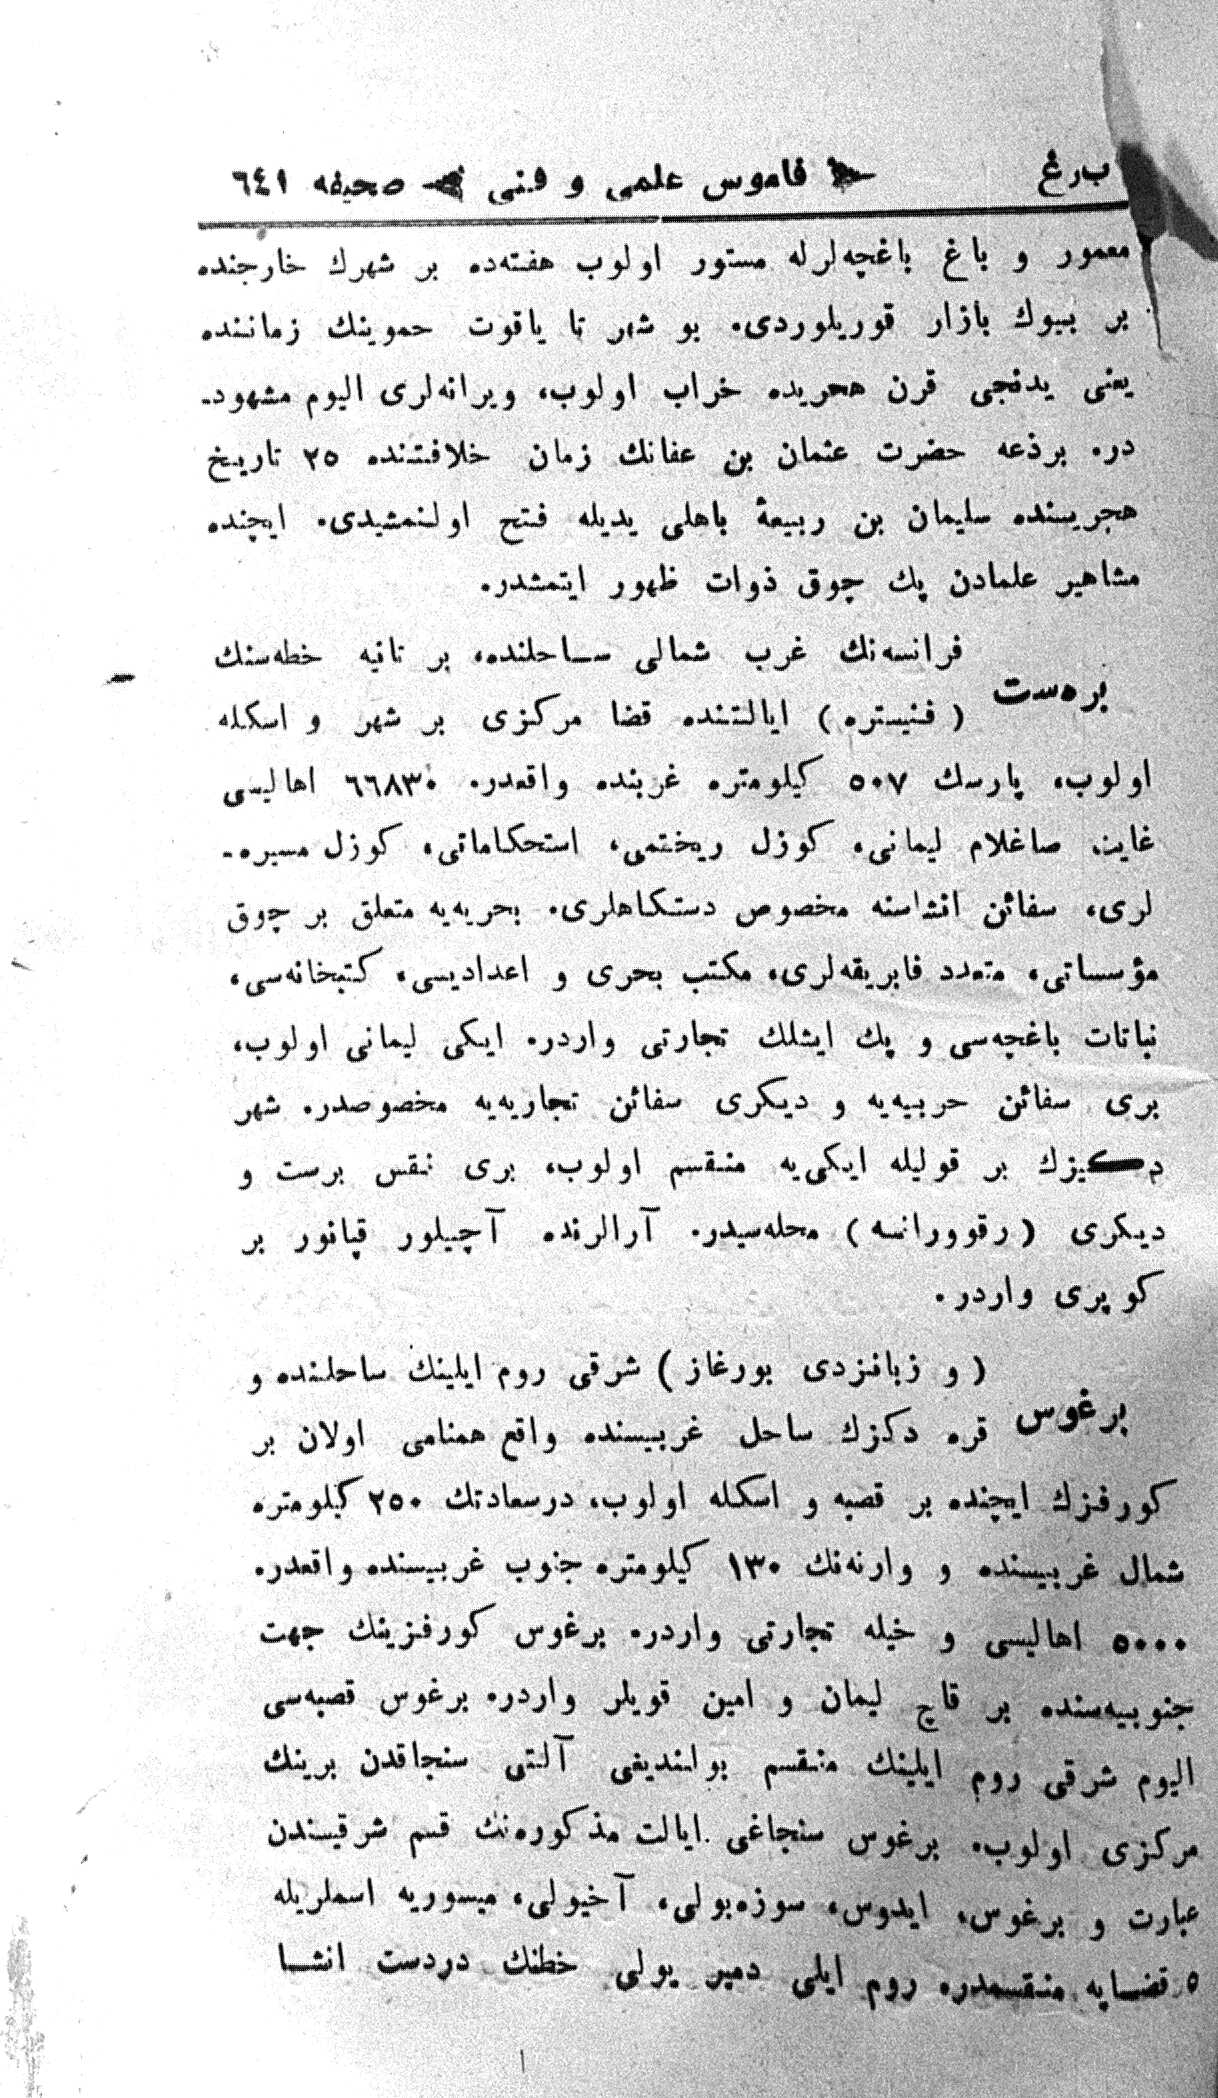 ب‌رغ قاموس علمی و فنی صحیفه ٦٤١
معمور و باغ باغچه‌لرله مستور اولوب هفته‌ده بر شهرك خارجنده
بر بیوك بازار قوریلوردی. بو شهر تا یاقوت حموینك زماننده
یعنی یدنجی قرن هجریده خراب اولوب، ویرانه‌لری الیوم مشهود-
در. برذعه حضرت عثمان بن عفانك زمان خلافتنده ٢٥ تاریخ
هجریسنده سلیمان بن ربیعهٔ باهلی یدیله فتح اولنمشیدی. ایچنده
مشاهیر علمادن پك چوق ذوات ظهور ایتمشدر.
فرانسه‌نك غرب شمالی ساحلنده، بر تانیه خطه‌سنك
بره‌ست
(فنیستره) ایالتنده قضا مركزی بر شهر و اسكله
اولوب، پارسك ٥٠٧ كیلومتره غربنده واقعدر. ٦٦٨٣٠ اهالیسی
غایت صاغلام لیمانی، كوزل ریختمی، استحكاماتی، كوزل مسیره-
لری، سفائن انشاسنه مخصوص دستكاهلری. بحریه‌یه متعلق بر چوق
مؤسساتی، متعدد فابریقه‌لری، مكتب بحری و اعدادیسی، كتبخانه‌سی،
نباتات باغچه‌سی و پك ایشلك تجارتی واردر. ایكی لیمانی اولوب،
بری سفائن حربیه‌یه و دیكری سفائن تجاریه‌یه مخصوصدر. شهر
دكیزك بر قولیله ایكی‌یه منقسم اولوب، بری نفس برست و
دیكری (رقوورانسه) محله‌سیدر. آرالرنده آچیلور قپانور بر
كوپری واردر.
(و زبانزدی بورغاز) شرقی روم ایلینك ساحلنده و
برغوس
قره دكزك ساحل غربیسنده واقع همنامی اولان بر
كورفزك ایچنده بر قصبه و اسكله اولوب، درسعادتك ٢٥٠ كیلومتره
شمال غربیسنده و وارنه‌نك ١٣٠ كیلومتره جنوب غربیسنده واقعدر.
٥٠٠٠ اهالیسی و خیله تجارتی واردر. برغوس كورفزینك جهت
جنوبیه‌سنده بر قاچ لیمان و امین قویلر واردر. برغوس قصبه‌سی
الیوم شرقی روم ایلینك منقسم بولندیغی آلتی سنجاقدن برینك
مركزی اولوب. برغوس سنجاغی ایالت مذكوره‌نك قسم شرقیسندن
عبارت و برغوس، ایدوس، سوزه‌بولی، آخیولی، میسوریه اسملریله
٥ قضایه منقسمدر. روم ایلی دمیر یولی خطنك دردست انشا